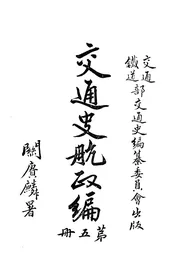 交通
鐵道部交通史編纂委員會出版
交通史航政編
第五冊
關賡麟署